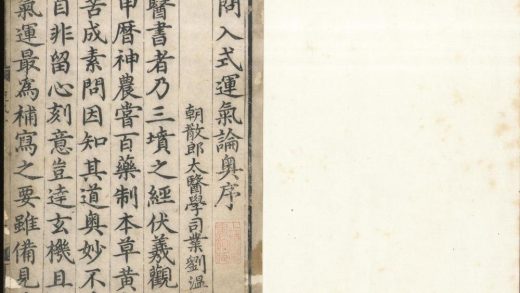 入式運氣論奧序
朝散郎太醫學司業劉溫
醫書者乃三墳之經伏羲觀
甲曆神農嘗百藥制本草黃
苦成素問因知其道奧妙不
自非留心刻意豈達玄機且
氣運最為補寫之要雖備見